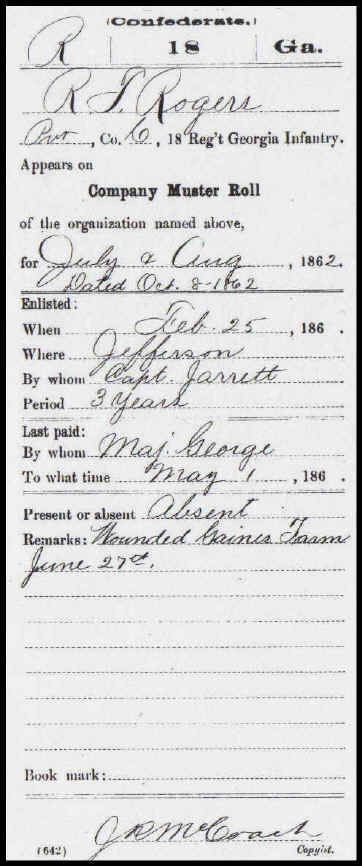 (Confederate.)
R | 18 | Ga.
R T Rogers
Pvt, Co. C, 18 Reg't Georgia Infantry.
Appears on
Company Muster Roll
of the organization named above,
for July & Aug, 1862.
Dated Oct. 2-1862
Enlisted:
When Feb. 25, 186 .
Where Jefferson
By whom Capt. Jarrett
Period 3 Years
Last paid:
By whom Maj. George
To what time May 1, 186 .
Present or absent Absent
Remarks: Wounded Gaines Farm
June 27th.
Book mark:
J R McCoach
(642) Copyist.